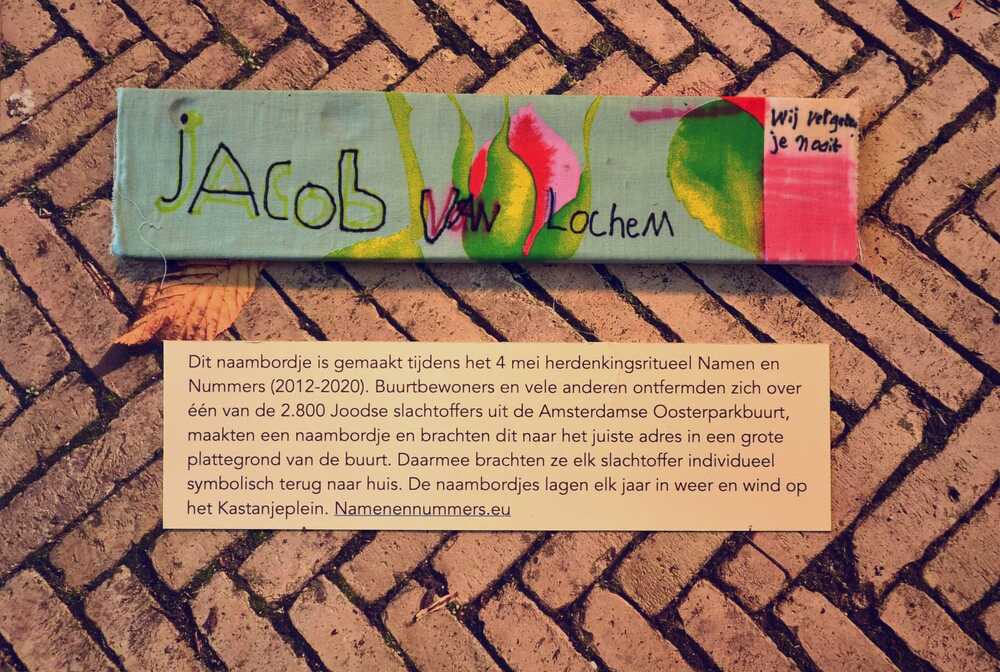 JACOB VAN LOCHEM
Wij vergeten
je nooit
Dit naambordje is gemaakt tijdens het 4 mei herdenkingsritueel Namen en
Nummers (2012-2020). Buurtbewoners en vele anderen ontfermden zich over
één van de 2.800 Joodse slachtoffers uit de Amsterdamse Oosterparkbuurt,
maakten een naambordje en brachten dit naar het juiste adres in een grote
plattegrond van de buurt. Daarmee brachten ze elk slachtoffer individueel
symbolisch terug naar huis. De naambordjes lagen elk jaar in weer en wind op
het Kastanjeplein. Namenennummers.eu